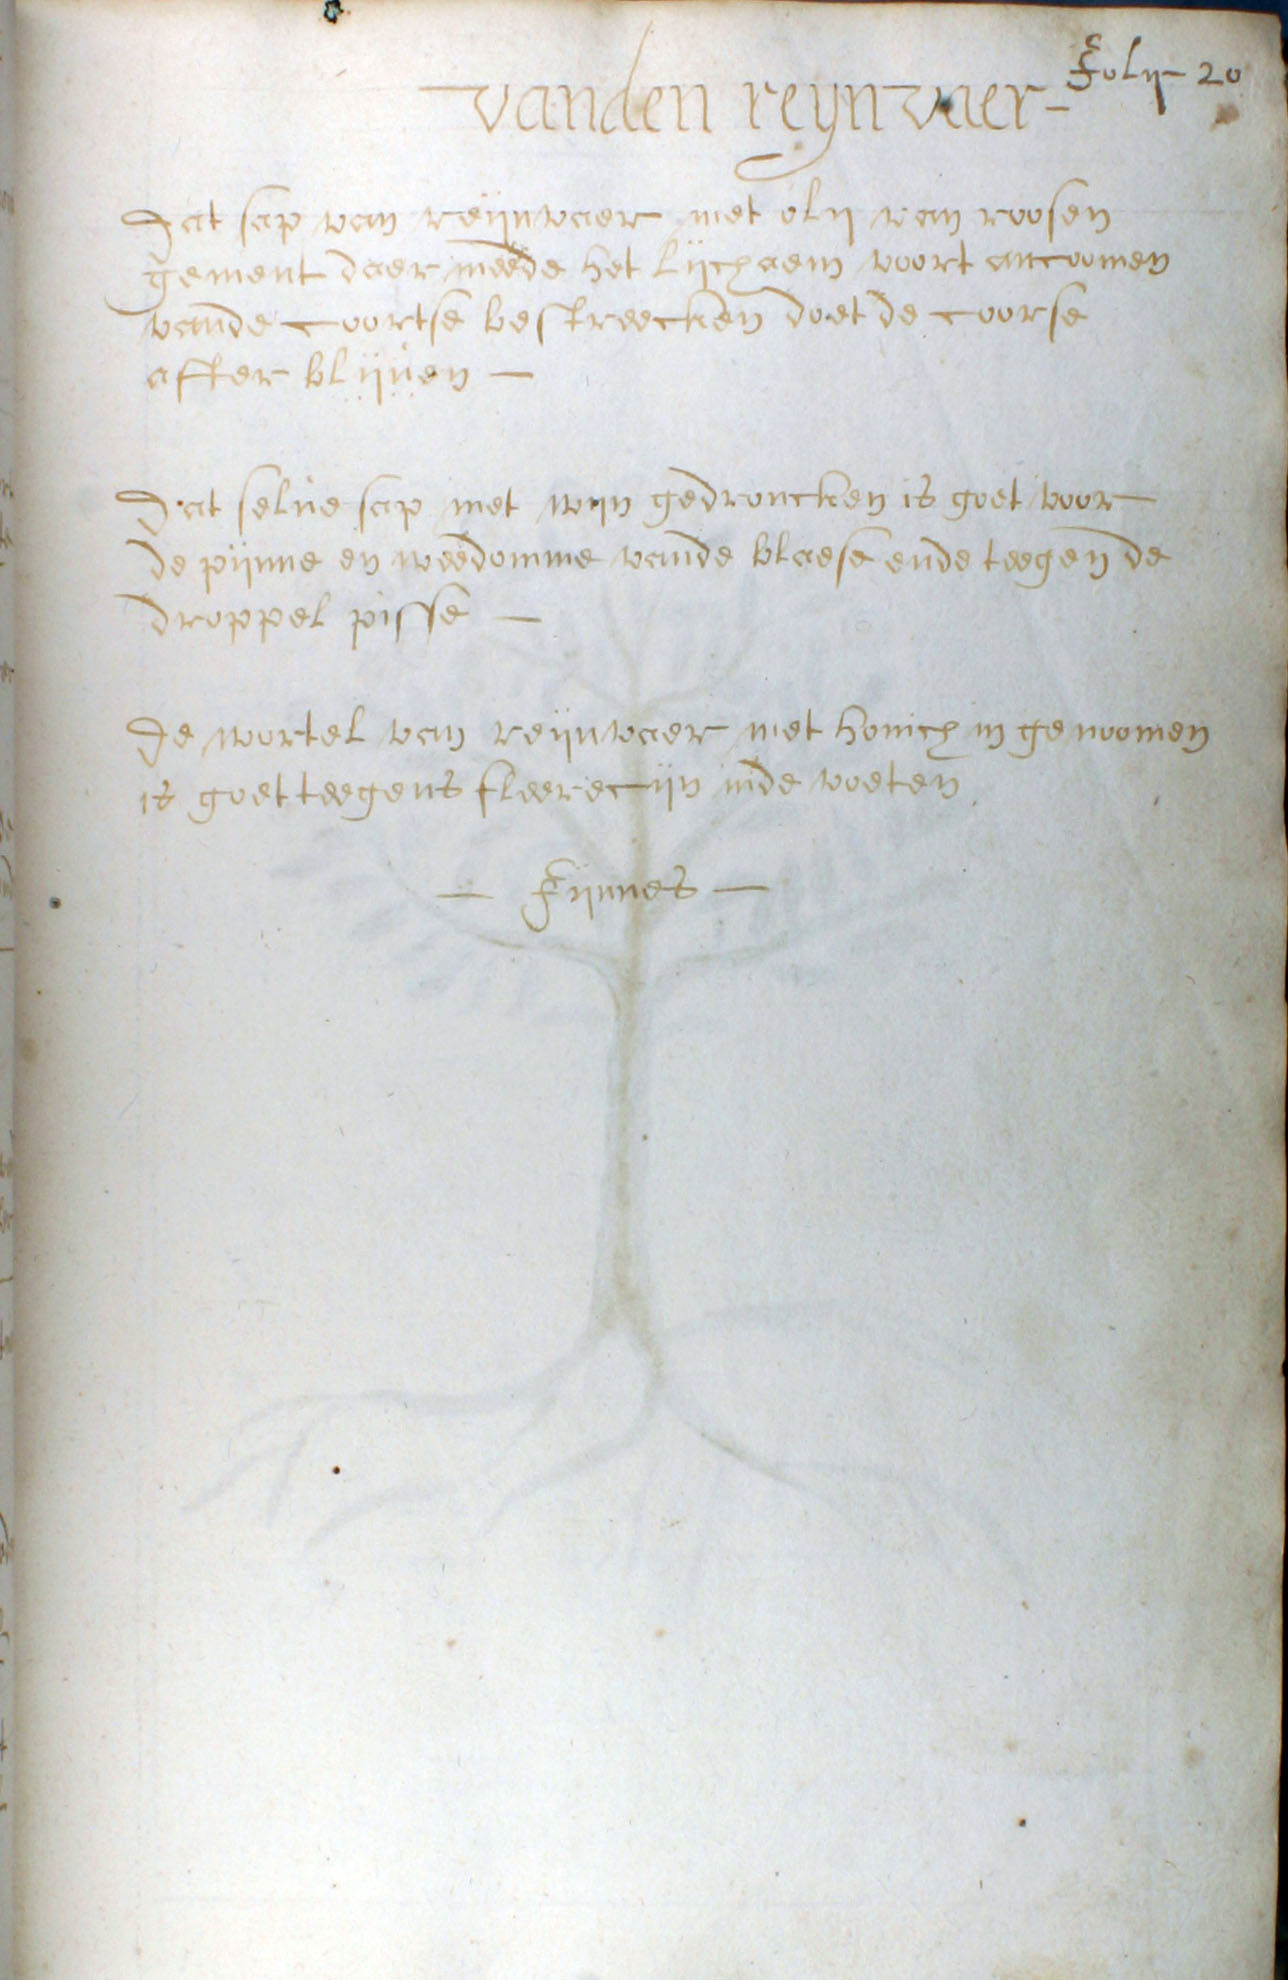 folij 20
vanden reynvaer
Dat sap van reijnvaer met olij van roosen
gement daer meede het lijchaem voort ancoomen
vande coortse bestreecken doet de coorse
after blijven
Dat selve sap met wijn gedroncken is goet voor
de pijnne en weedomme vande blaese ende teegen de
droppel pisse
De wortel van reijnvaer met honich in genoomen
is goet teegens fleerecijn inde voeten
Fijnnes